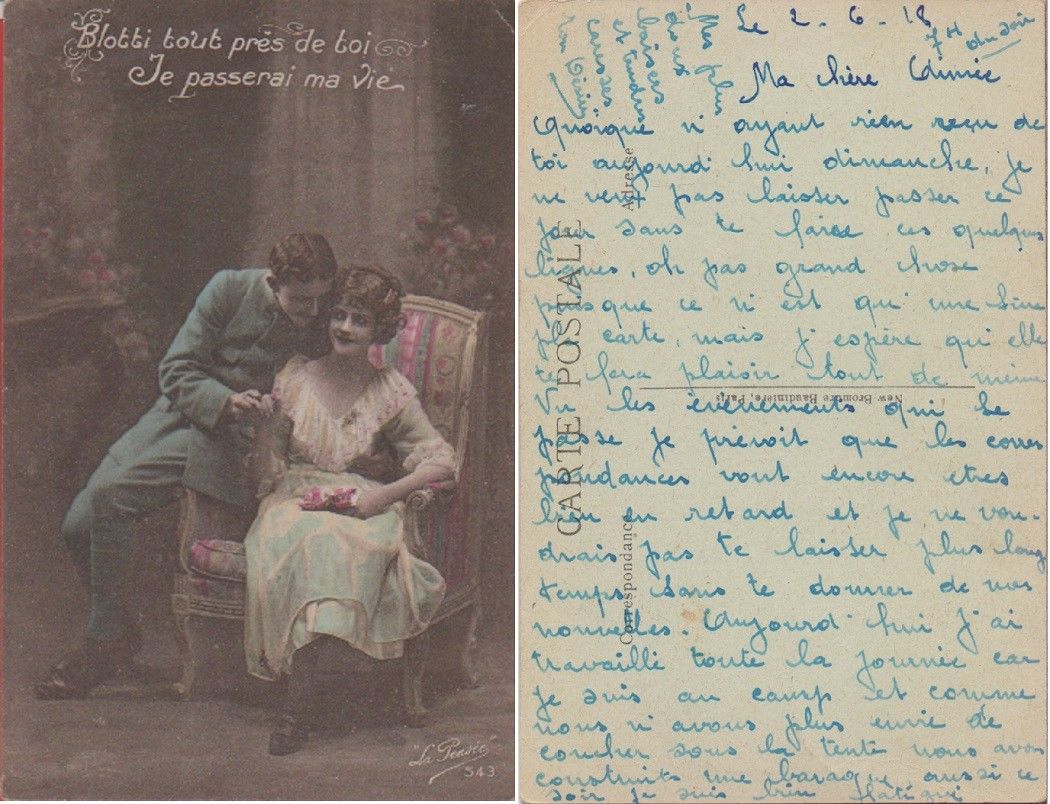 Blotti tout près de toi
Je passerai ma vie
"La Pensée"
543
Le 2-6-18
7H du soir
Ma chère Aimée
Quoique n'ayant rien reçu de
toi aujourd'hui dimanche, je
ne veux pas laisser passer ce
jour sans te faire ces quelques
lignes, oh pas grand chose
puisque ce n'est qu'une
carte, mais j'espère qui elle
te fera plaisir tout de même
Vu les évènements qui se
passe je prévoit que les corres
pondances vont encore etres
bien en retard et je ne vou-
drais pas te laisser plus long
temps sans te donner de mes
nouvelles. Aujourd'hui j'ai
travaillé toute la journée car
je suis au camp et comme
nous n'avons plus envie de
coucher sous la tente nous avons
construits une baraque, aussi ce
soir je suis bien fatigué
Mes plus
doux
baisers
et tendres
caresses
Ton
CARTE POSTALE
Correspondance
Adresse
New Bromure Baudinière, Paris